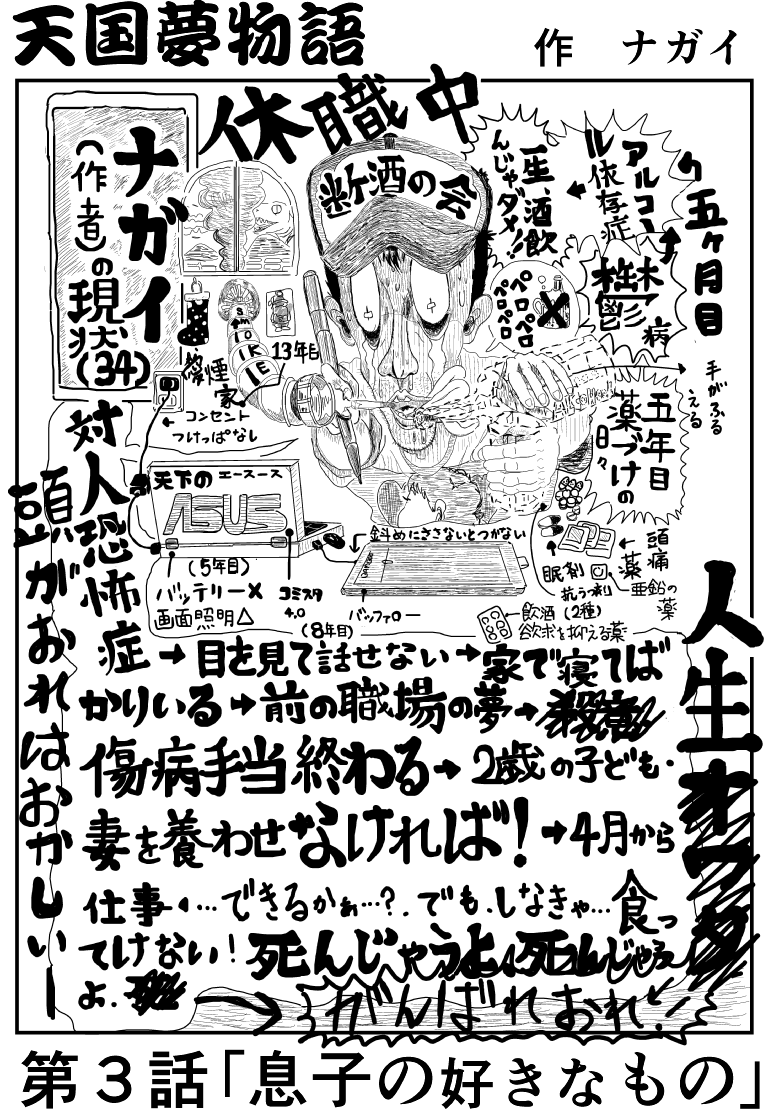 天国夢物語
作 ナガイ
ナガイ
(作者)の
現状
(34)
休職中
五ヶ月目
断酒の会
一生、酒飲
んじゃダメ!!
アルコー
ル依存症
鬱病
ペロペロ
ペロペロ
手がふる
える
五年目
薬づけの
日々
SMOKE
13年目
愛煙
家
コンセント
つけっぱなし
天下のエースース
ASUS
(5年目)
バッテリー×
画面照明△
コミスタ
4.0
斜めにささないとつがない
バッファロー
(8年目)
眠剤
抗うつ剤
頭痛
薬
亜鉛の
薬
飲酒(2種)
欲求を抑える薬
対人恐怖症→目を見て話せない→家で寝てば
かりいる→前の職場の夢→
傷病手当終わる→2歳の子ども・
妻を養わせなければ!→4月から
仕事…できるかぁ…?でも、しなきゃ…食っ
てけない!死んじゃうよ、死んじゃう
よ.
→がんばれおれ!
頭がおれはおかしぃー
人生オワタ
第3話「息子の好きなもの」